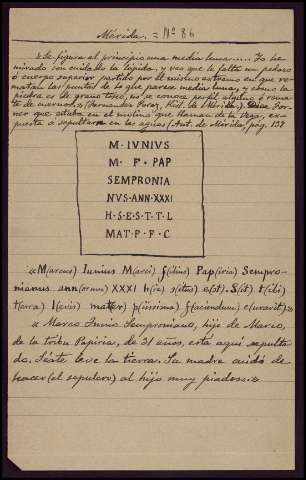 Mérida. = Nº 86
«Se figura al principio una media luna..... Yo he
mirado con cuidado la lápida, y veo que la falta un pedazo
ó cuerpo superior partido por el mismo estremo en que re-
matan las puntas de lo que parece media luna, y como la
piedra es de grano tosco, no se conoce perfil alguno ó rema-
te de cuernos.» (Fernandez Perez, Hist. de Mérida). Dice For-
ner que estaba en el molino que llaman de la Vega, ex-
puesta a sepultarse en las aguas (Ant. de Mérida, pág. 137
M · IVNIVS
M · F · PAP
SEMPRONIA
NVS · ANN · XXXI
H · S · E · S · T · T · L
MAT · P · F · C
«M(arcus) Iunius M(arci) f(ilius) Pap(iria) Sempro-
nianus ann(orum) XXXI h(ic) s(itus) e(st). S(it) t(ibi)
t(erra) l(evis) mater p(iissima) f(aciendum) c(uravit).»
«Marco Junio Semproniano, hijo de Marco,
de la tribu Papiria, de 31 años, está aquí sepulta-
do. Séate leve la tierra. Su madre cuidó de
hacer (el sepulcro) al hijo muy piadoso.»